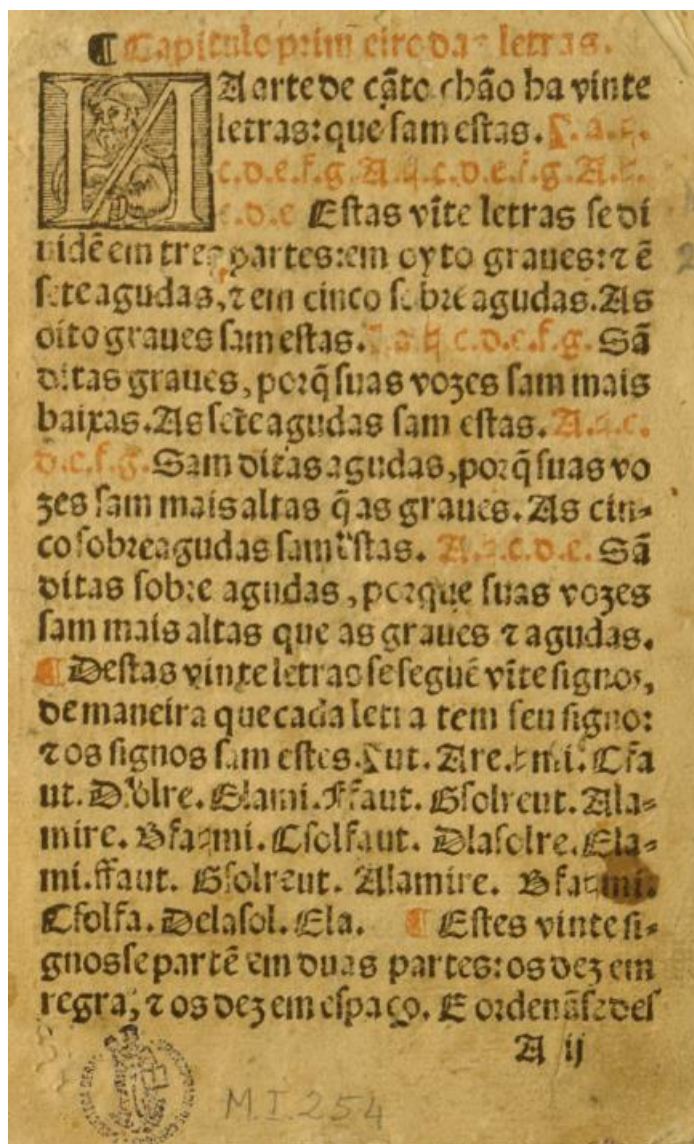 ¶ Capitulo primeiro das letras.
NA arte de cãto chão ha vinte
letras: que sam estas. Γ. a. ♮.
c.d.e.f.g. A.♮.c.d.e.f.g. A.♮.
c.d.e Estas vĩte letras se di
uidẽ em tres partes: em oyto graues: ⁊ ẽ
sete agudas, ⁊ em cinco sobre agudas. As
oito graues sam estas. Γ a ♮ c.d.e.f.g. Sã
ditas graues, porq̃ suas vozes sam mais
baixas. As sete agudas sam estas. A.♮.c.
d.e.f.g. Sam ditas agudas, porq̃ suas vo
zes sam mais altas q̃ as graues. As cin-
co sobreagudas sam estas. A.♮.c.d.e. Sã
ditas sobre agudas, porque suas vozes
sam mais altas que as graues ⁊ agudas.
¶ Destas vinte letras se seguẽ vĩte signos,
de maneira que cada letra tem seu signo:
⁊ os signos sam estes. Γut. Are. ♮mi. Cfa
ut. Dsolre. Elami. Ffaut. Gsolreut. Ala-
mire. Bfa♮mi. Csolfaut. Dlasolre. Ela-
mi. ffaut. Gsolreut. Alamire. Bfa♮mi.
Csolfa. Delasol. Ela. ¶ Estes vinte si-
gnos se partẽ em duas partes: os dez em
regra, ⁊ os dez em espaço. E ordenãse des
A ij
M.I.254